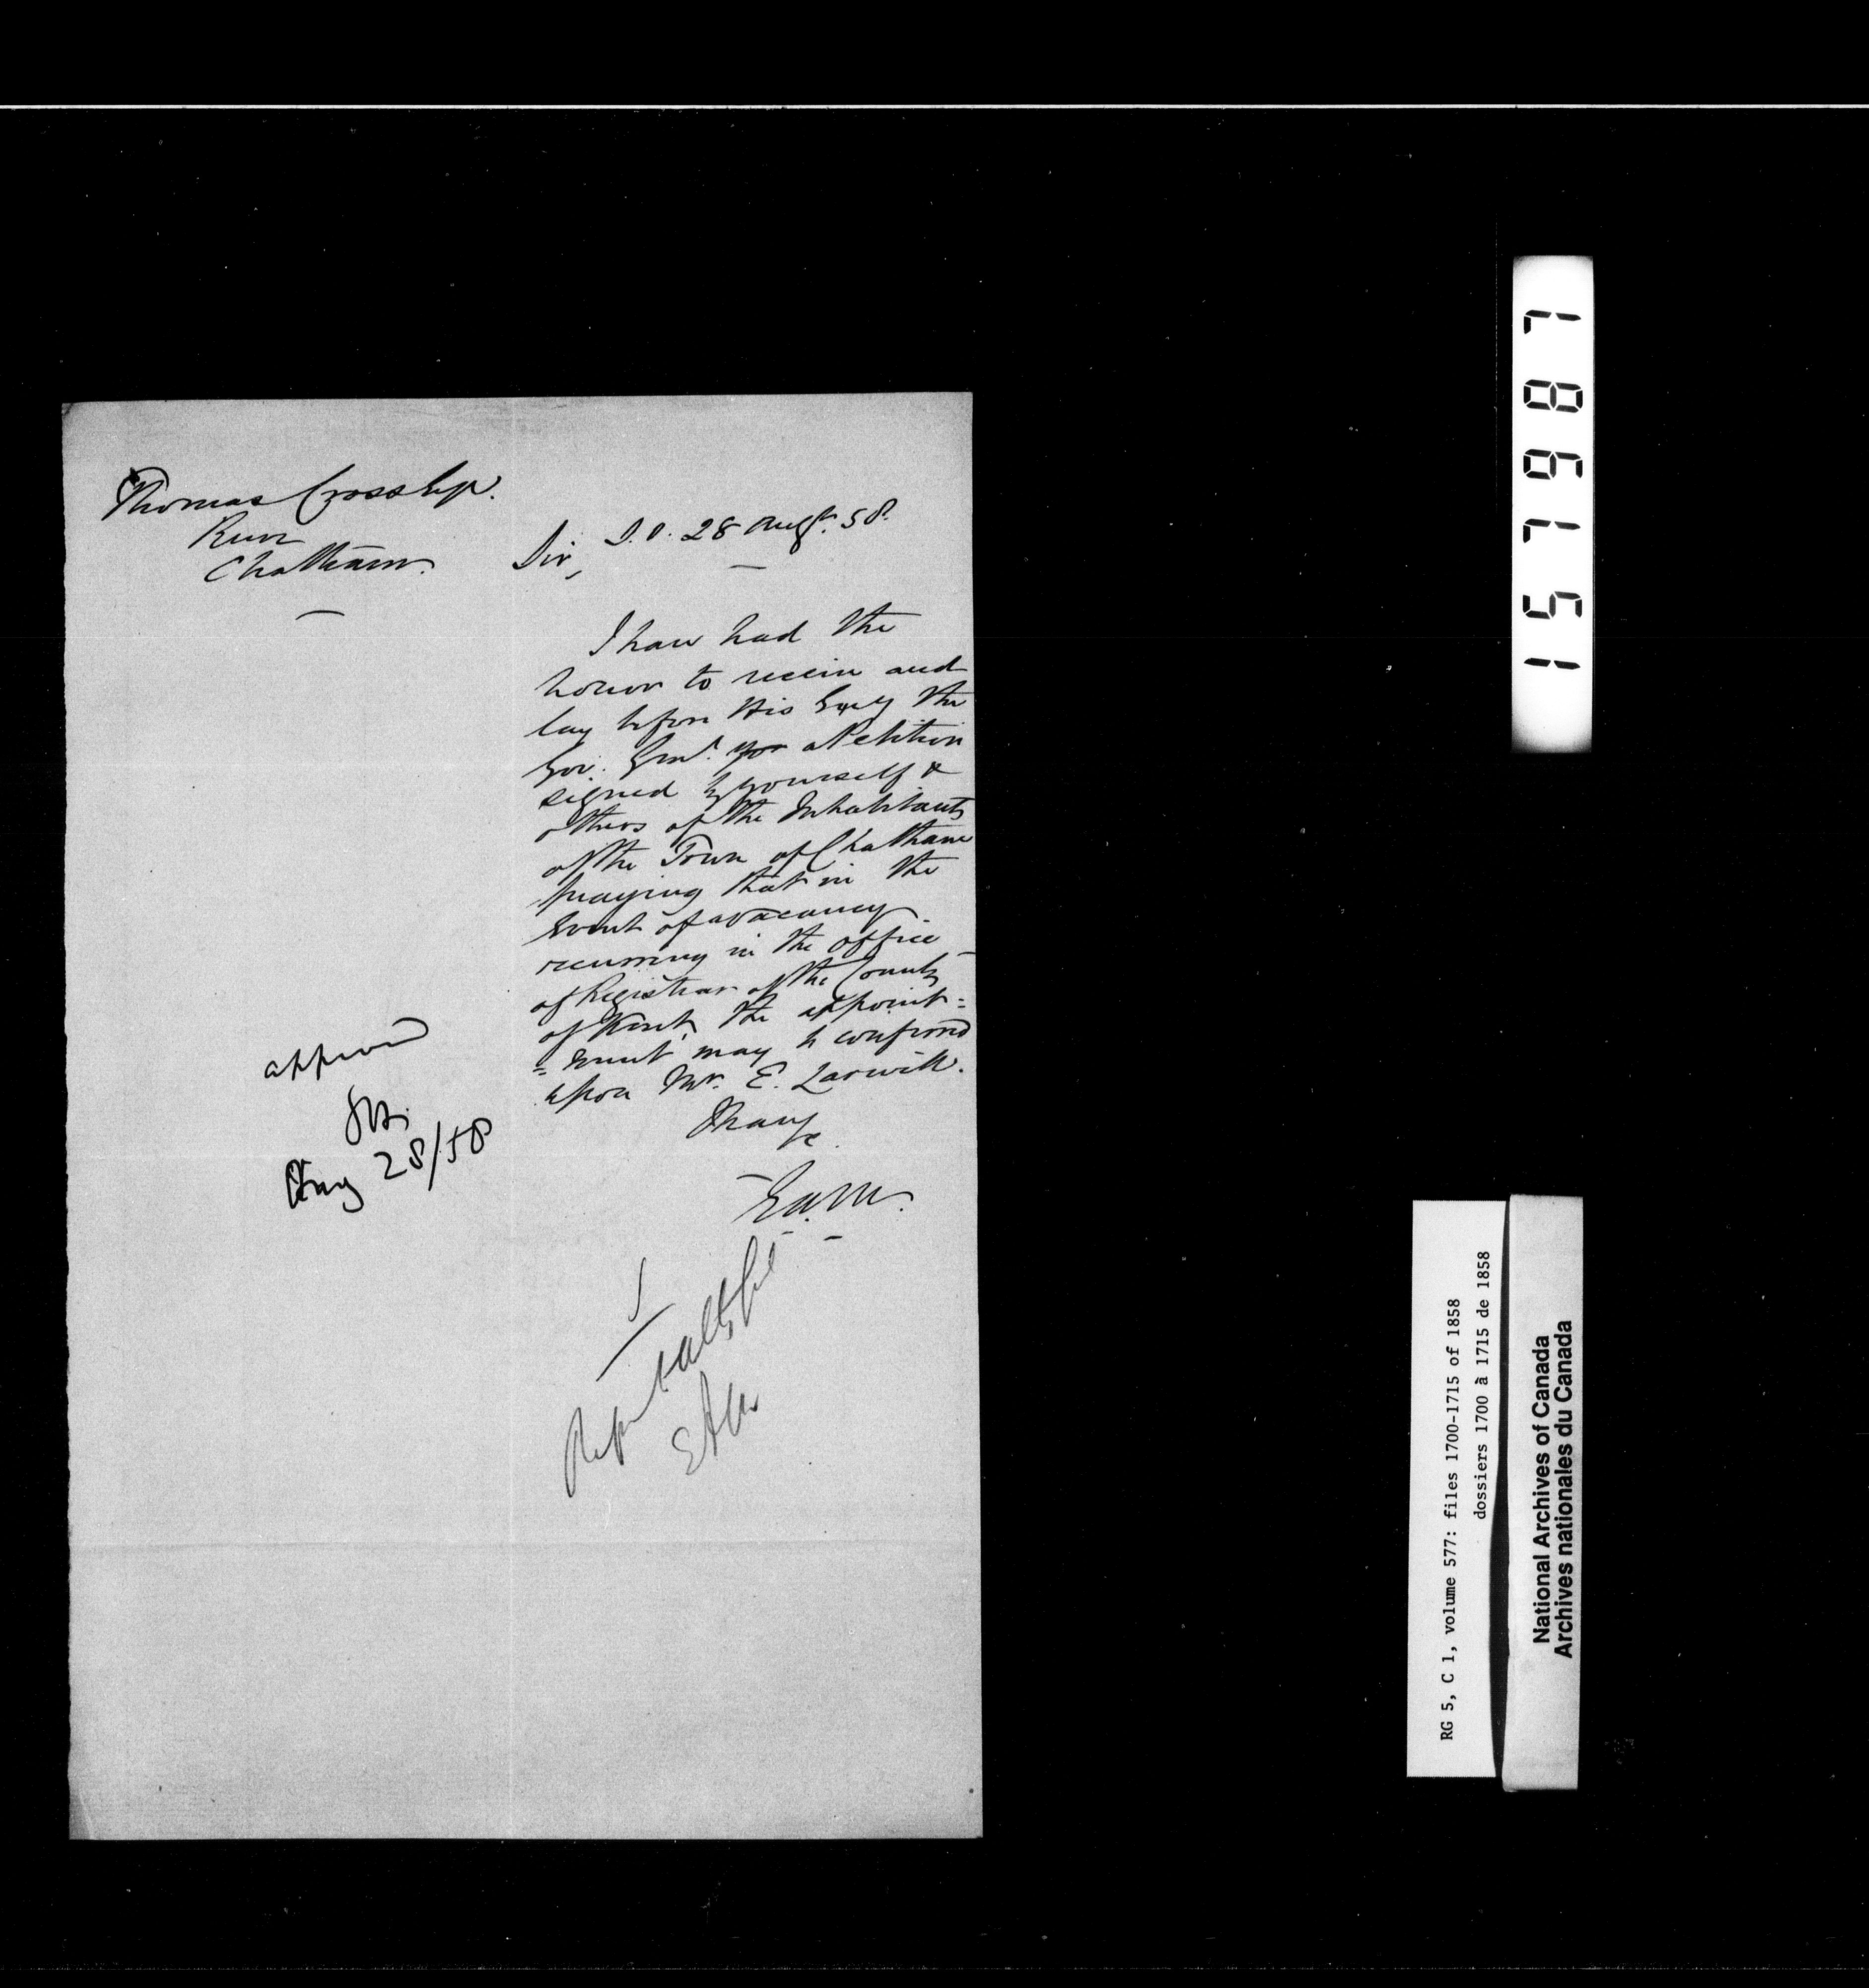 Thomas Cross Esqr.
Chatham.
S.O. 28 Augt. 58.
Sir,
I have had the
honor to receive and
lay before His Excy the
Gov. Genl. a Petition
signed by yourself &
others of the Inhabitants
of the Town of Chatham
praying that in the
event of a vacancy
occurring in the office
of Registrar of the County
of Kent, the appoint=
=ment may be conferred
upon Mr. E. Larwill.
I have &c
E.A.M.
approved
Aug 28/58
EAM
157687
RG 5, C 1, volume 577: files 1700-1715 of 1858
dossiers 1700 à 1715 de 1858
National Archives of Canada
Archives nationales du Canada